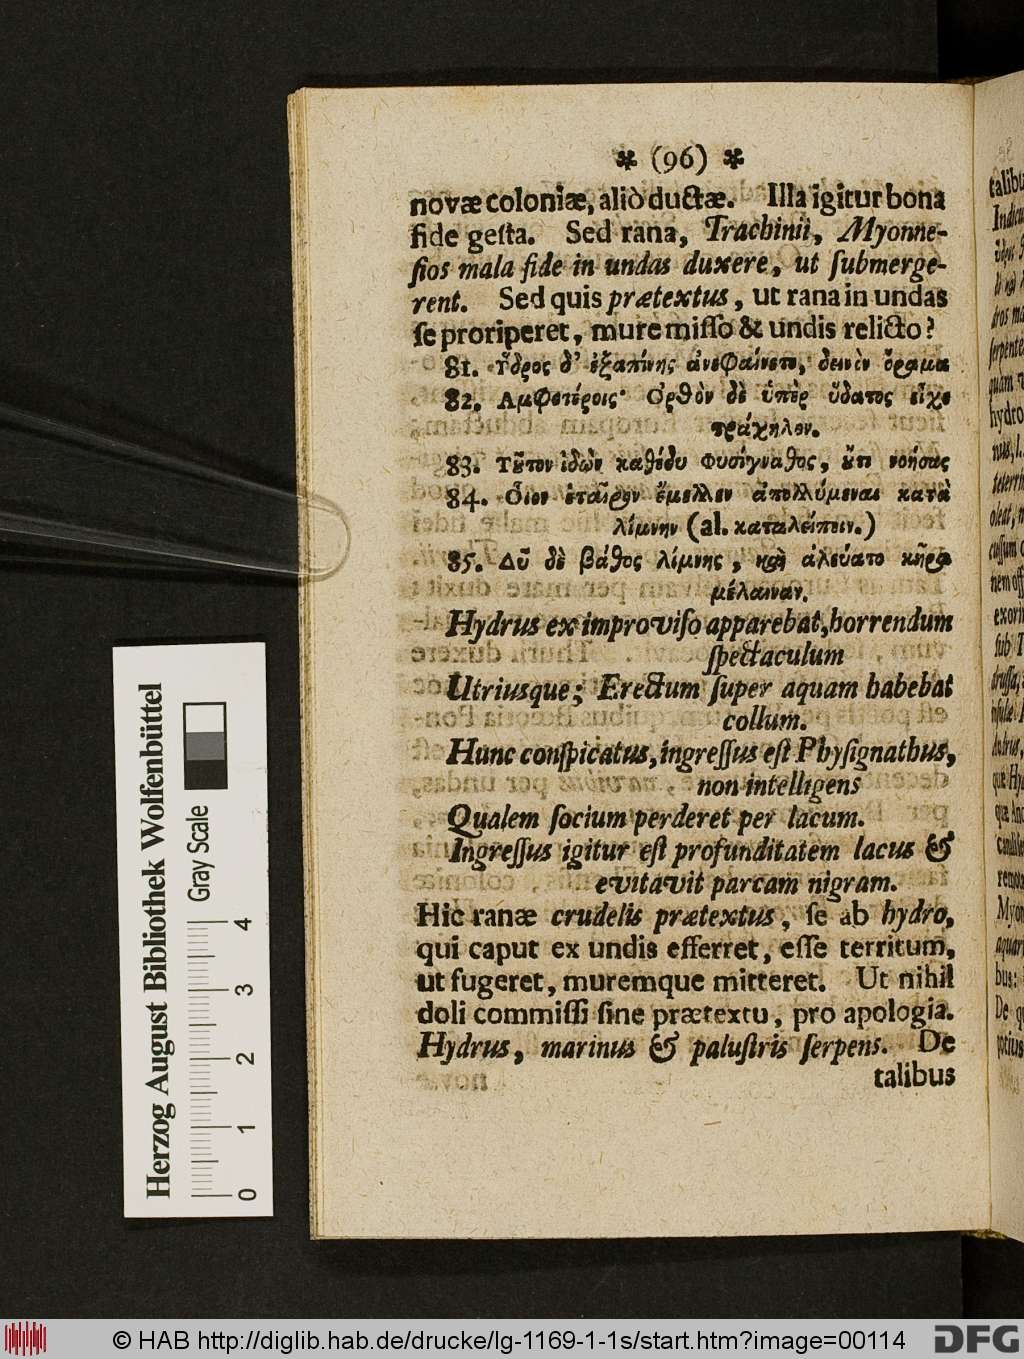 ✻ (96) ✻
novæ coloniæ, aliò ductæ. Illa igitur bona
fide geſta. Sed rana, Trachinii, Myonne-
ſios mala fide in undas duxere, ut ſubmerge-
rent. Sed quis prætextus, ut rana in undas
ſe proriperet, mure miſſo & undis relicto?
81. Ὕδρος δ' ἐξαπίνης ἀνεφαίνετο, δεινὸν ὅραμα
82. Ἀμφοτέροις· Ὀρθὸν δὲ ὑπὲρ ὕδατος εἶχε
τράχηλον.
83. Τοῦτον ἰδὼν κατέδυ Φυσίγναθος, οὔτι νοήσας
84. Οἷον ἑταῖρον ἔμελλεν ἀπολλύμεναι κατὰ
λίμνην (al. καταλείπειν.)
85. Δῦ δὲ βάθος λίμνης, καὶ ἀλεύατο κῆρα
μέλαιναν.
Hydrus ex improviſo apparebat, horrendum
ſpectaculum
Utriusque; Erectum ſuper aquam habebat
collum.
Hunc conſpicatus, ingreſſus eſt Phyſignathus,
non intelligens
Qualem ſocium perderet per lacum.
Ingreſſus igitur eſt profunditatem lacus &
evitavit parcam nigram.
Hic ranæ crudelis prætextus, ſe ab hydro,
qui caput ex undis efferret, eſſe territum,
ut fugeret, muremque mitteret. Ut nihil
doli commiſſi ſine prætextu, pro apologia.
Hydrus, marinus & paluſtris ſerpens. De
talibus
Herzog August Bibliothek Wolfenbüttel
Gray Scale
0 1 2 3 4
© HAB http://diglib.hab.de/drucke/lg-1169-1-1s/start.htm?image=00114
DFG